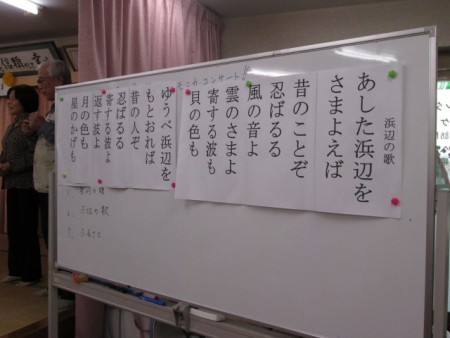 浜辺の歌
あした浜辺を
さまよえば
昔のことぞ
忍ばるる
風の音よ
雲のさまよ
寄する波も
貝の色も
ゆうべ浜辺を
もとおれば
昔の人ぞ
忍ばるる
寄する波よ
返す波よ
月の色も
星のかげも
コンサート
浜辺の歌
ふるさと